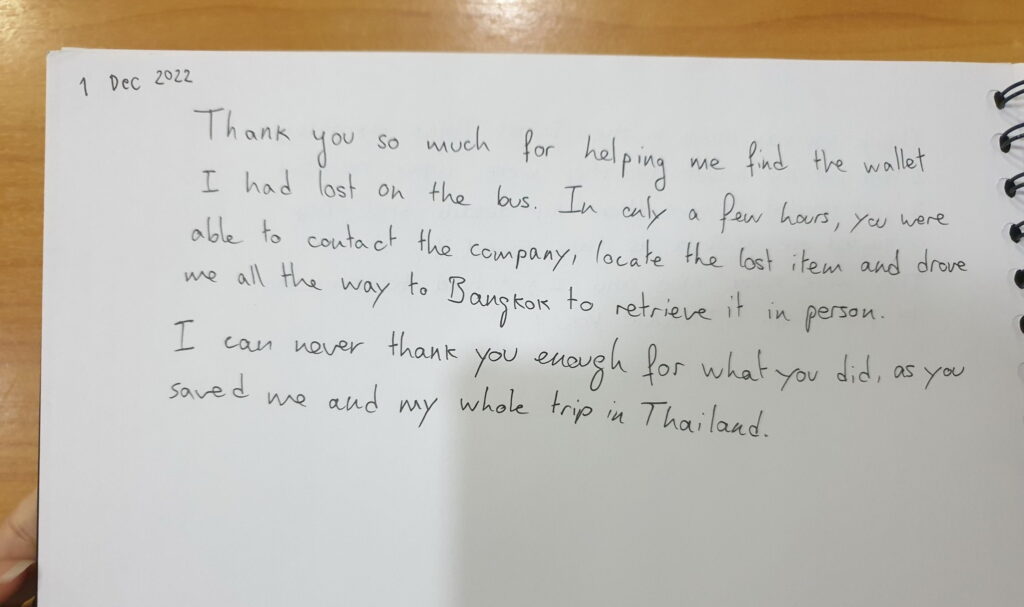 1 Dec 2022
Thank you so much for helping me find the wallet
I had lost on the bus. In only a few hours, you were
able to contact the company, locate the lost item and drove
me all the way to Bangkok to retrieve it in person.
I can never thank you enough for what you did, as you
saved me and my whole trip in Thailand.